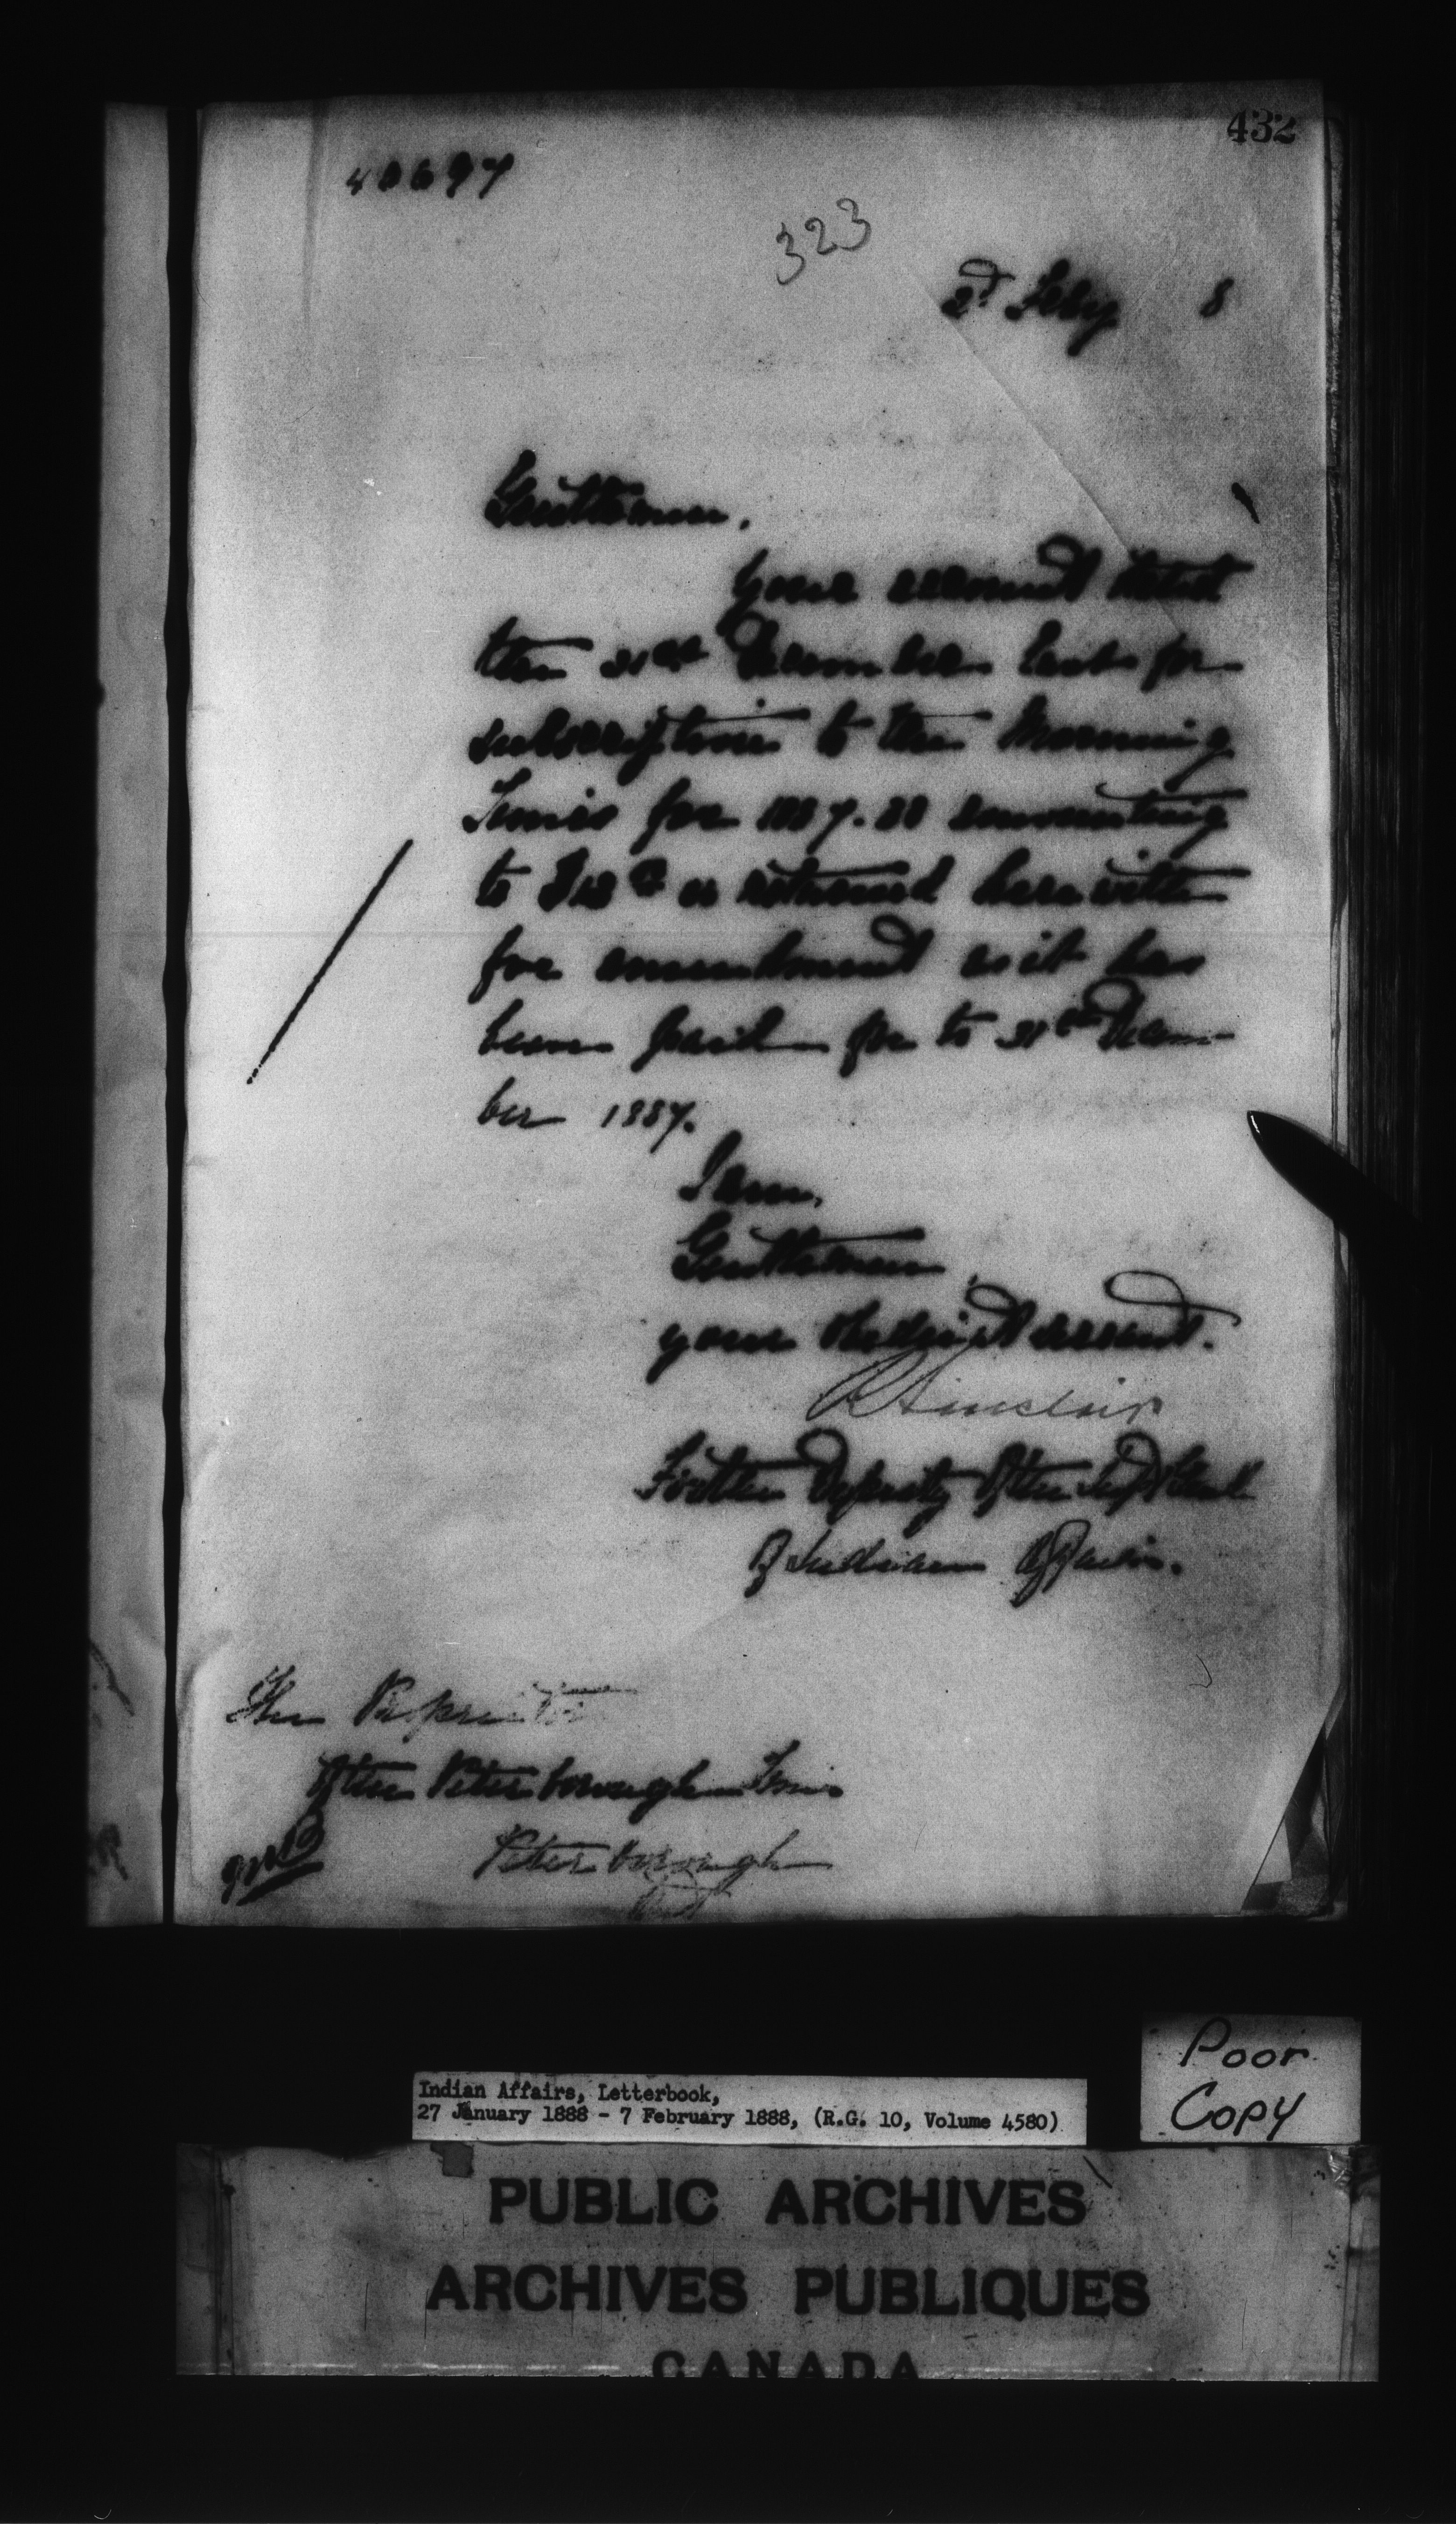 432
40697
323
2d Feby 8
Gentlemen,
Your account dated
the 31st December last for
subscription to the Morning
Times for 1887-88 amounting
to is returned herewith
for amendment as it has
been paid for to 31st Decem-
ber 1887.
I am,
Gentlemen
your obedient servant.
R Sinclair
For the Deputy of the Supt Genl
of Indian Affairs.
The Proprietors
of the Peterborough Times
Peterborough
Ont
Poor
Copy
Indian Affairs, Letterbook,
27 January 1888 - 7 February 1888, (R.G. 10, Volume 4580)
PUBLIC ARCHIVES
ARCHIVES PUBLIQUES
CANADA